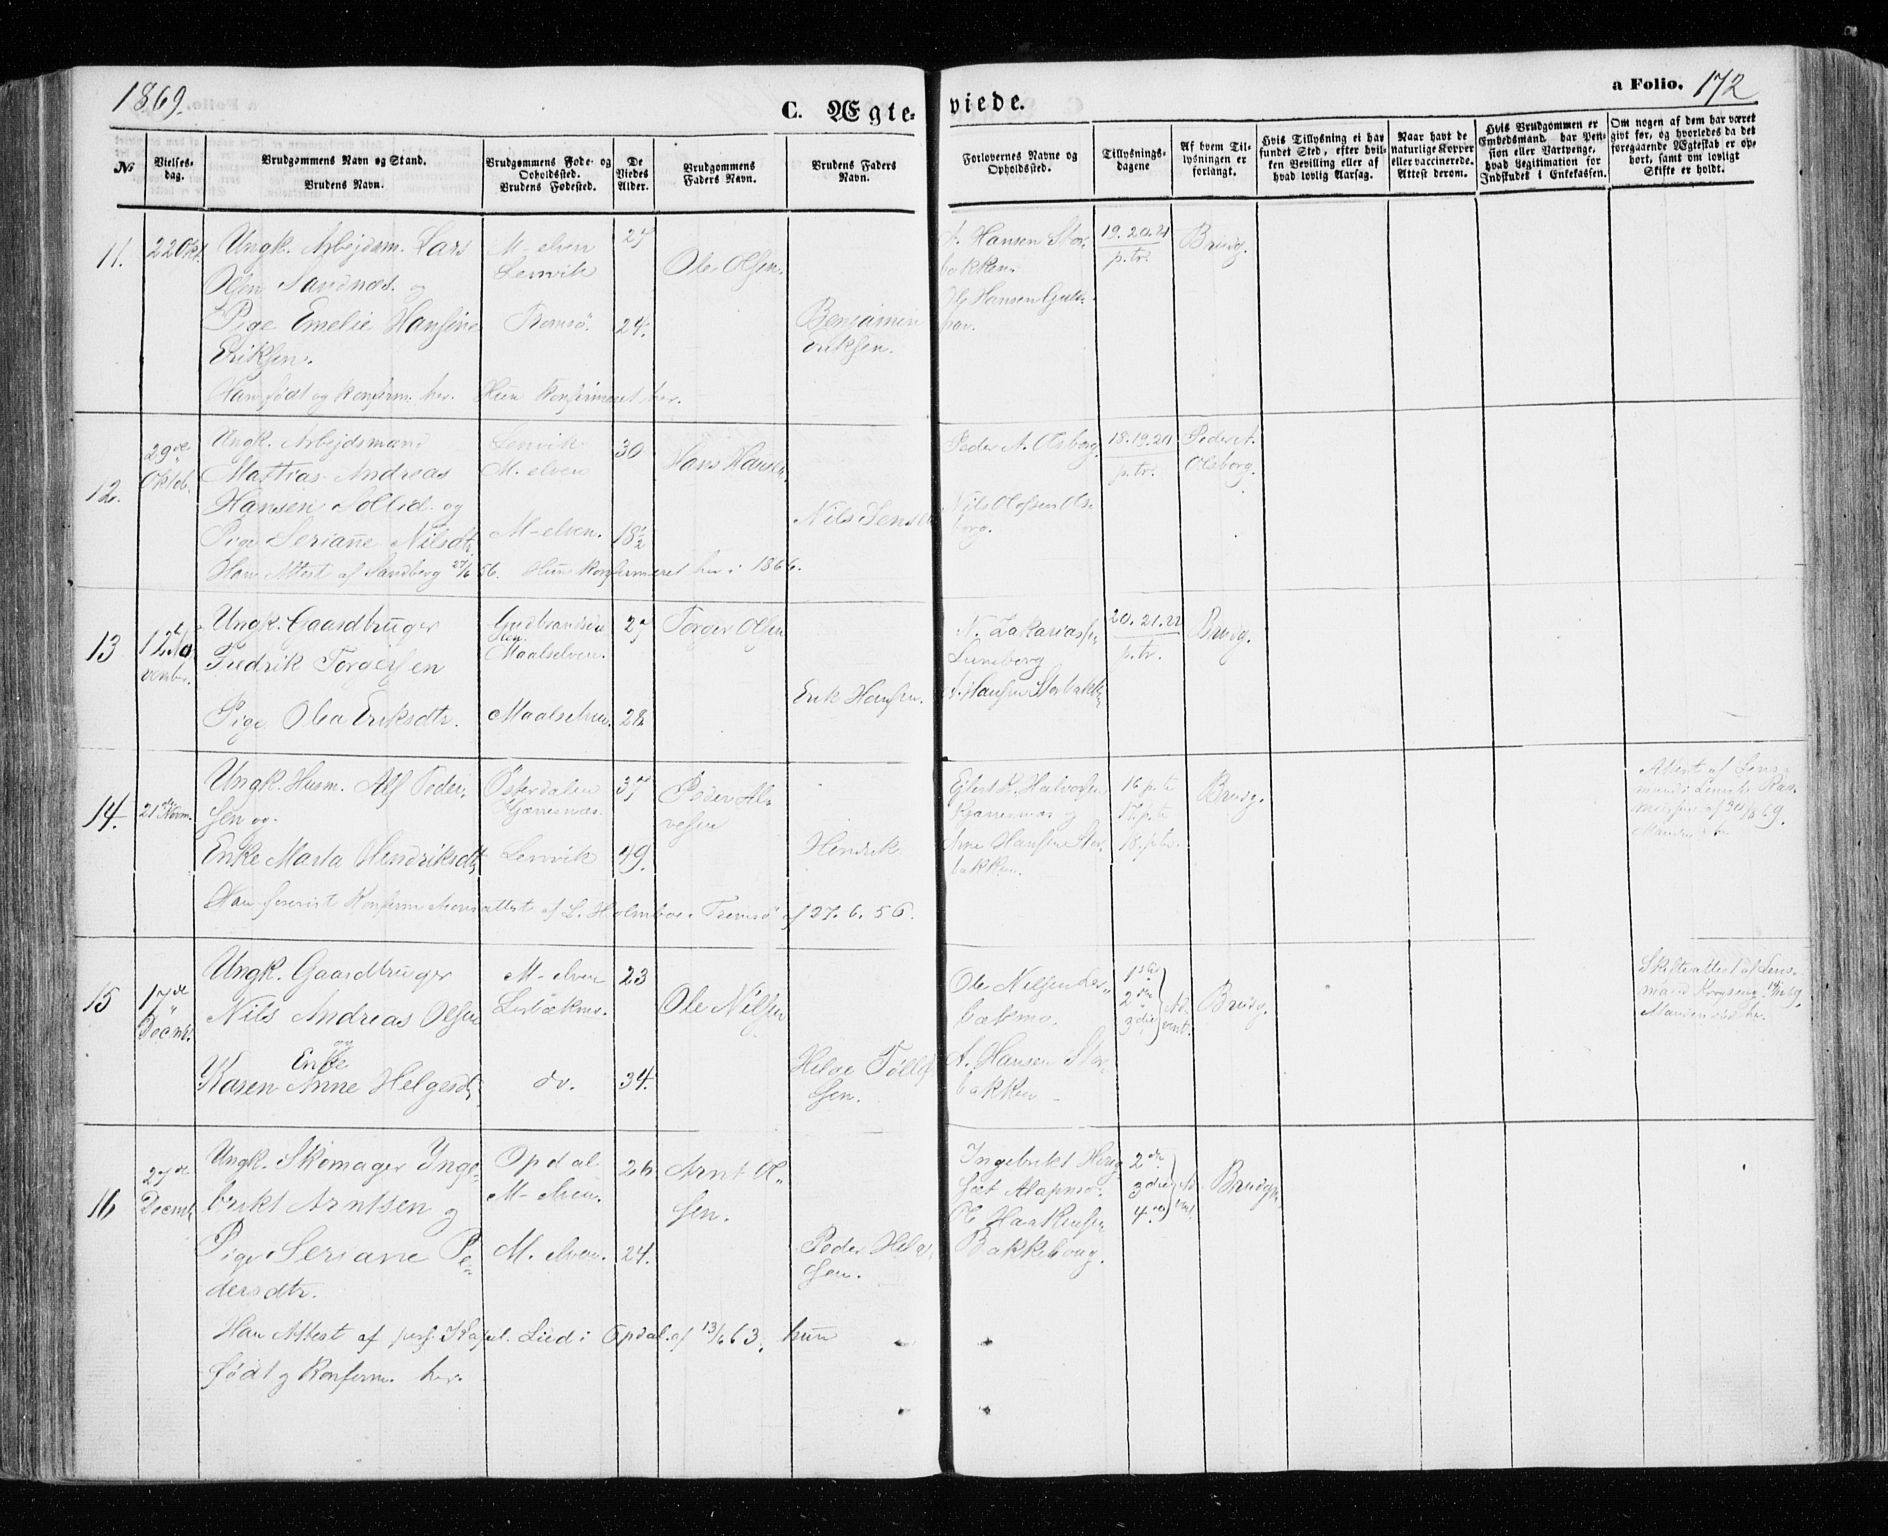 1869.
C. Ægteviede.
a Folio. 172
No
Vielses-dag.
Brudgommens Navn og Stand.
Brudens Navn.
Brudgommens Føde- og Opholdssted.
Brudens Fødested.
De Viedes Alder.
Brudgommens Faders Navn.
Brudens Faders Navn.
Forlovernes Navne og Opholdssted.
Tillysnings-dagene
Af hvem Tillysningen er forlangt.
Hvis Tillysning ei har fundet Sted, efter hvilken Bevilling eller af hvad lovlig Aarsag.
Naar havt de naturlige Kopper eller vaccinerede. Attest derom.
Hvis Brudgommen er Embedsmand, har Pension eller Vartpenge, hvad Legitimation for Indskudet i Enkekassen.
Om nogen af dem har været gift før, og hvorledes da det foregaaende Ægteskab er ophørt, samt om lovligt Skifte er holdt.
11. 22 Okt. Ungk. Arbejdsm. Lars M-elven 27
Olsen Sandnæs. og Lenvik Ole Olsen.
Pige Emelie Hansine Tromsø. 24. Benjamin
Eriksen. Eriksen.
A. Hansen Stor- 19. 20. 21 Brudg.
bakken. p. tr.
Han født og konfirm. her. Hun konfirmeret her.
12. 29de Oktob. Ungk. Arbejdsmand Lenvik 30
Mathias Andreas M-elven Hans Hansen
Hansen Sollid og
Pige Seriane Nilsdtr. M-elven. 18½ Nils Jensen
Peder A. Olsborg. 18. 19. 20 Peder A.
p. tr. Olsborg.
Nils Olofsen Ols-
borg.
Han Attest af Sandberg 27/6 56. Hun konfirmeret her i 1866.
13 12te November. Ungk. Gaardbruger Gudbrandsdalen 27 Torger Olsen
Fredrik Torgersen Maalselven.
Pige Olea Eriksdtr. Maalselven. 28 Erik Hansen.
N. Zakariassen 20. 21. 22 Brudg.
p. tr.
A. Hansen Storbakken
14. 21de Novm. Ungk. Husm. Alf Peder- Østerdalen 37 Peder Al-
sen og Kjærresnæs. vesen
Enke Marta Hendriksdtr. Lenvik 49. Hendrik
Eilert K. Halvorsen 16 p. tr. Brudg.
og 17. p. tr.
Arne Hansen Stor- 18. p. tr.
bakken.
Attest af Lens-
mand i Lenvik Ras-
mussen af 30/ 69.
Han forevist Konfirm attest af L. Holmboe i Tromsø af 27. 6. 56.
15 17de Decmb. Ungk. Gaardbruger M-elven 23
Nils Andreas Olsen Ole Nilsen
og
Enke
Karen Anne Helgesdtr. do. 34. Helge Tolle-
sen.
Ole Nilsen 1ste
bækmo. 2den Ad- Brudg.
3die vent.
A. Hansen Stor-
bakken
Skifteattest af Lens-
mand 69.
16 27de Decmb. Ungk. Skomager Inge- Opdal 26 Arnt Ol-
brikt Arntsen og M-elven. sen.
Pige Seriane Pe- M. elven. 24. Peder Helge-
dersdtr. sen.
Ingebrikt 2den Brudg.
3die Ad-
O. Haakensen 4de vent.
Bakkehoug.
Han Attest af pers. Kapel. Lied i Opdal af 13/6 63, hun
født og konfirm. her.